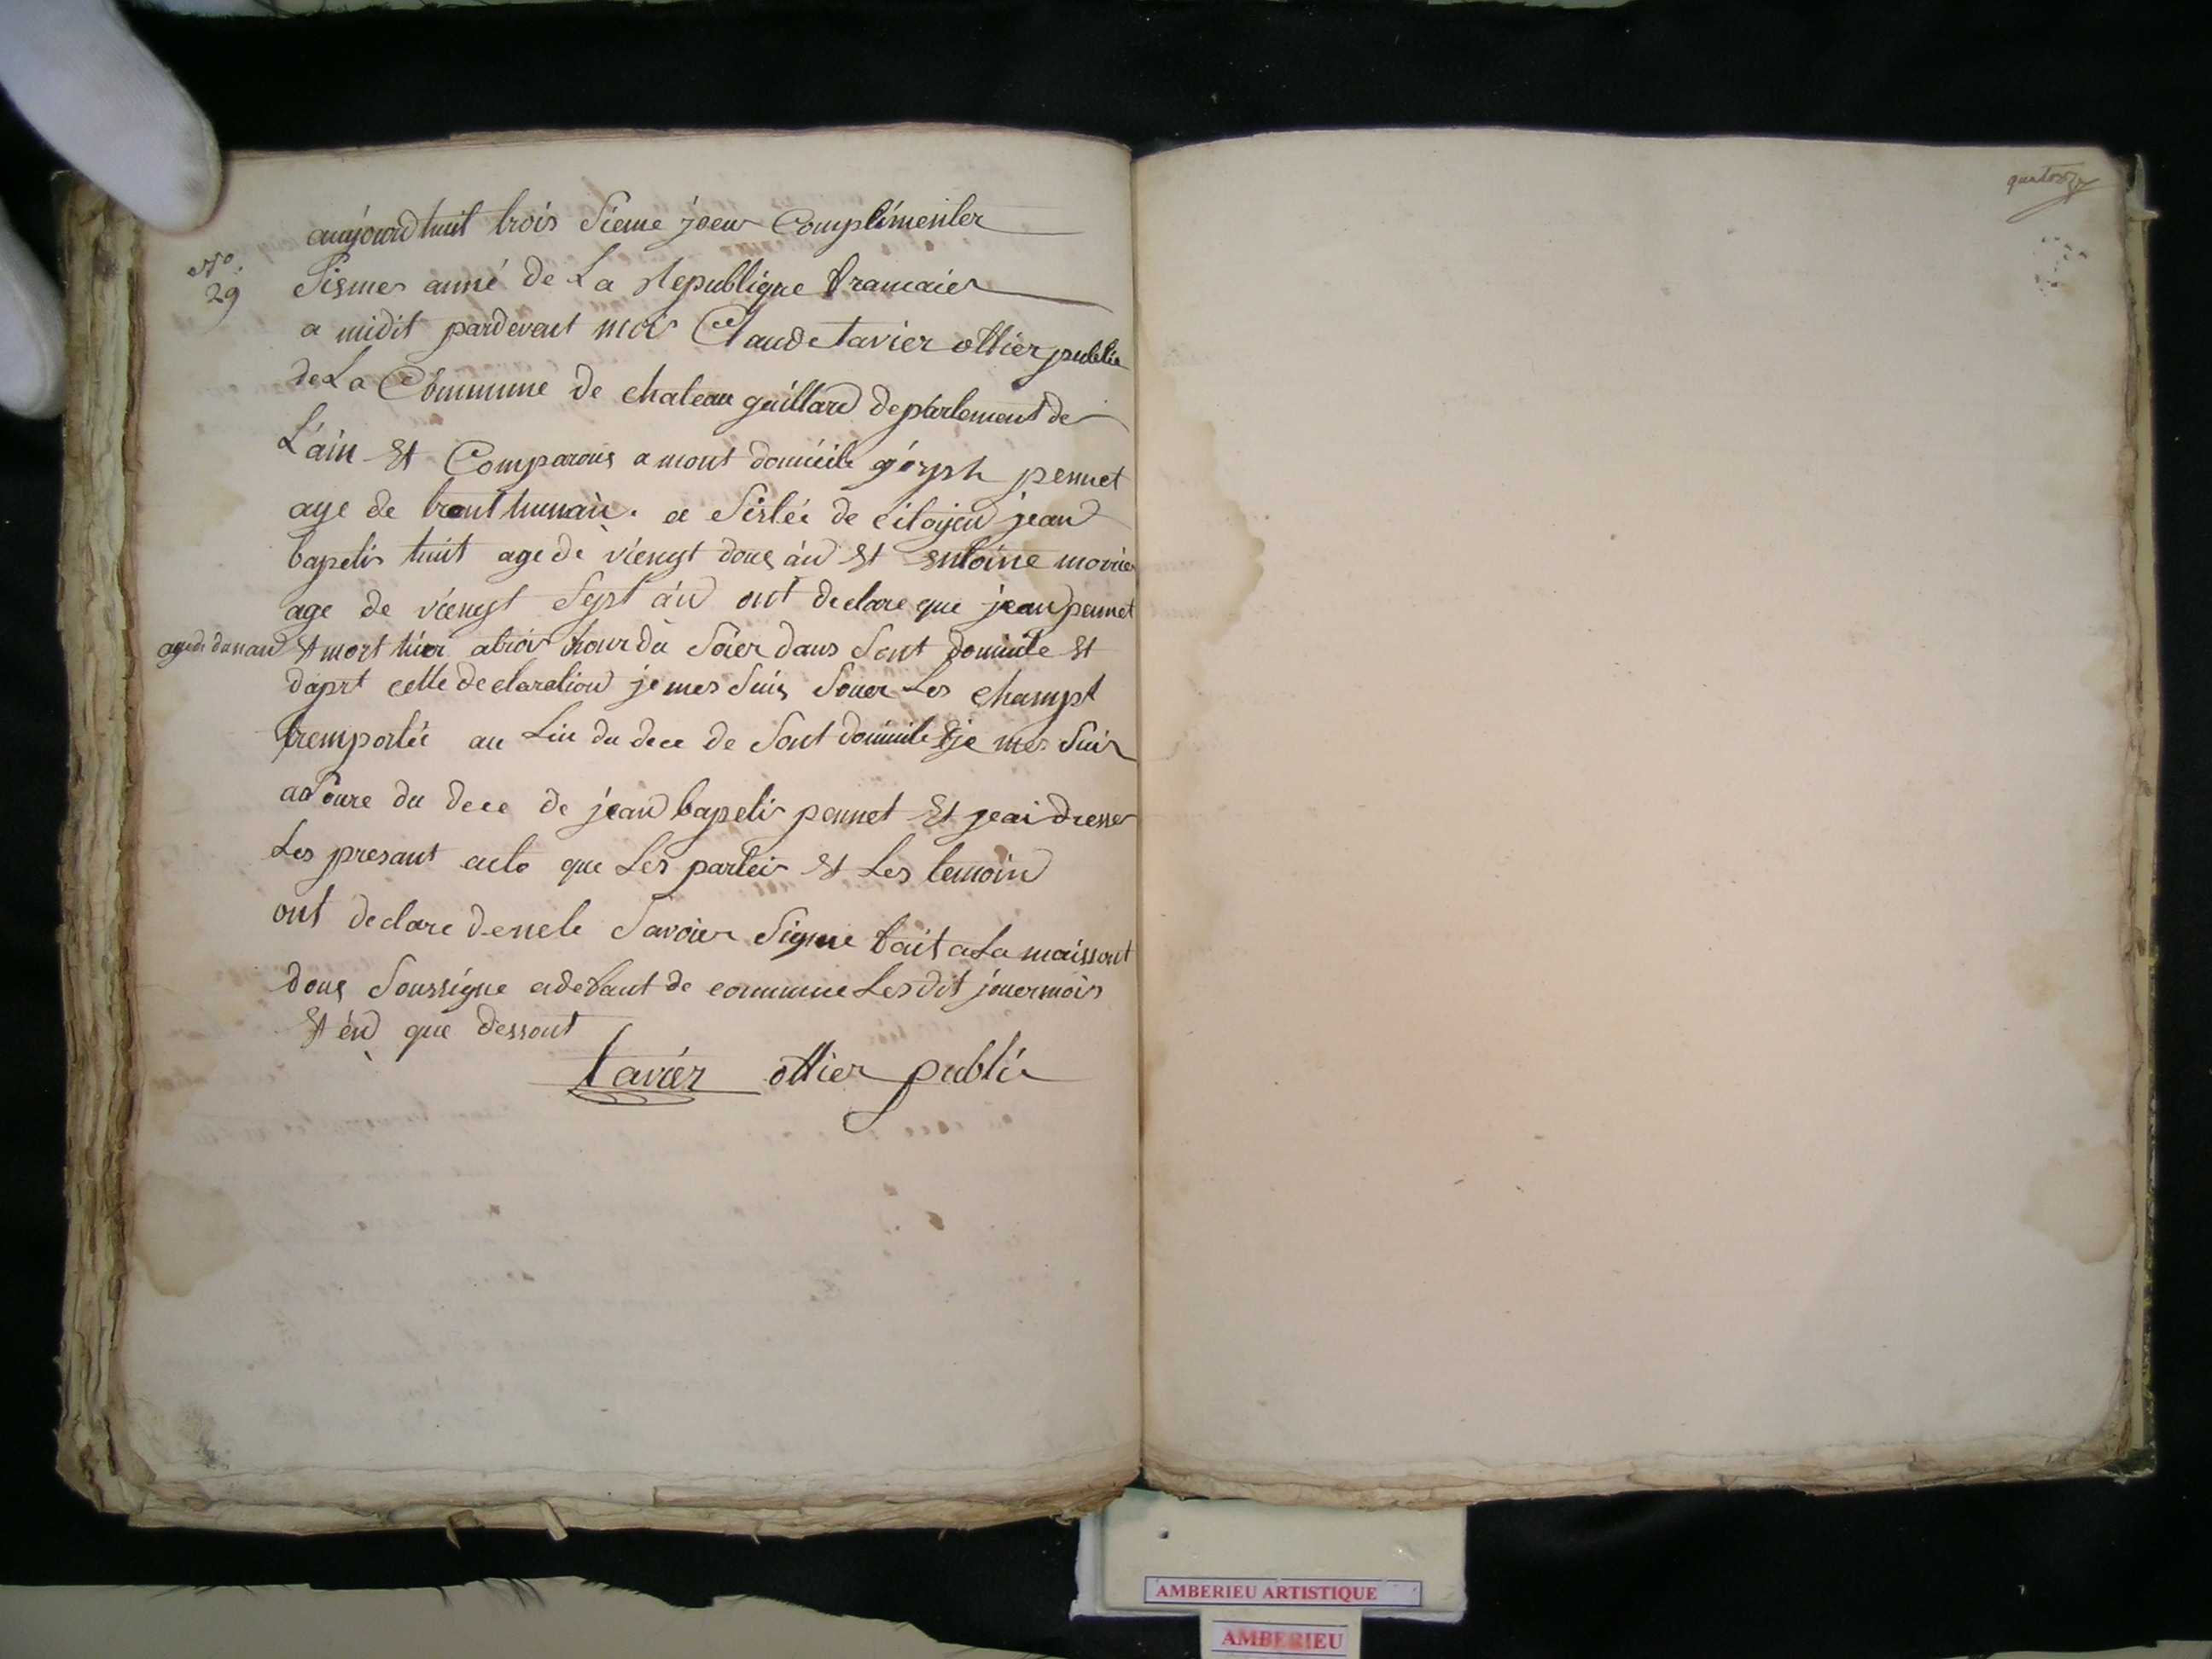 No.
29
aujourdhuit trois sieme joeur Complimenter
Sismes anné de La Republique francaies
a midit pardevent moi Claude tavier offier public
de La Commune de chateau gaillard deptartement de
L'ain Et Comparous a mont domicile gosph pennet
age de trant hunan. a sistéé de citoyen jean
bapetis huit age de viengt dous an Et entoine movrier
age de viengt Sept an ont declare que jean pennet
age de dun an Et mort hier atrois hour du Soier dans Sont domicile Et
daprt cette declaration je mes Suis Souer Les champt
tremportéé au Liu du dece de Sont domicile Et je mes Suis
asSoure du dece de jean bapetis pennet Et jeai dresser
Les presant acte que Les parteis Et Les temoin
ont declare denele Savoier Signe fait a La maissont
dous Soussigne adefaut de commune Les dit jouer mois
Et en que dessout
tavier offier public
quatorze
AMBERIEU ARTISTIQUE
AMBERIEU